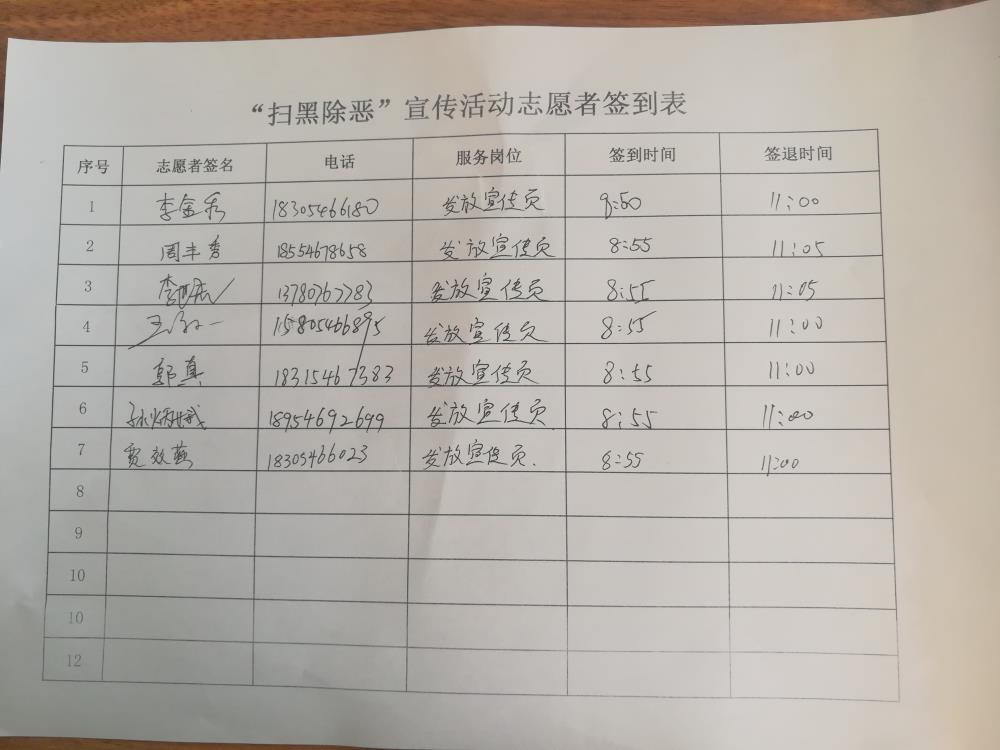 “扫黑除恶”宣传活动志愿者签到表
序号 志愿者签名 电话 服务岗位 签到时间 签退时间
1 李金秀 18305466180 发放宣传页 9:50 11:00
2 周丰秀 18554678658 发放宣传页 8:55 11:05
3 李 发放宣传页 8:55 11:05
4 王 15805466895 发放宣传页 8:55 11:00
5 郭真 18315467383 发放宣传页 8:55 11:00
6 孙炳斌 18954692699 发放宣传页 8:55 11:00
7 贾效燕 18305466023 发放宣传页. 8:55 11:00
8
9
10
10
12